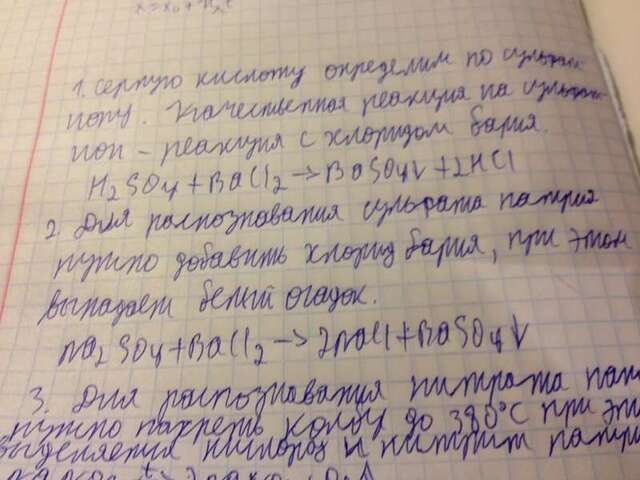 1. серную кислоту определим по сульфат
иону. Качественная реакция на сульфат
ион - реакция с хлоридом бария.
H2SO4 + BaCl2 → BaSO4↓ + 2HCl
2. Для распознавания сульфата натрия
нужно добавить хлорид бария, при этом
выпадает белый осадок.
Na2SO4 + BaCl2 → 2NaCl + BaSO4↓
3. Для распознавания нитрата нат
нужно нагреть колбу до 380°C при это
выделяется кислород и нитрит натри